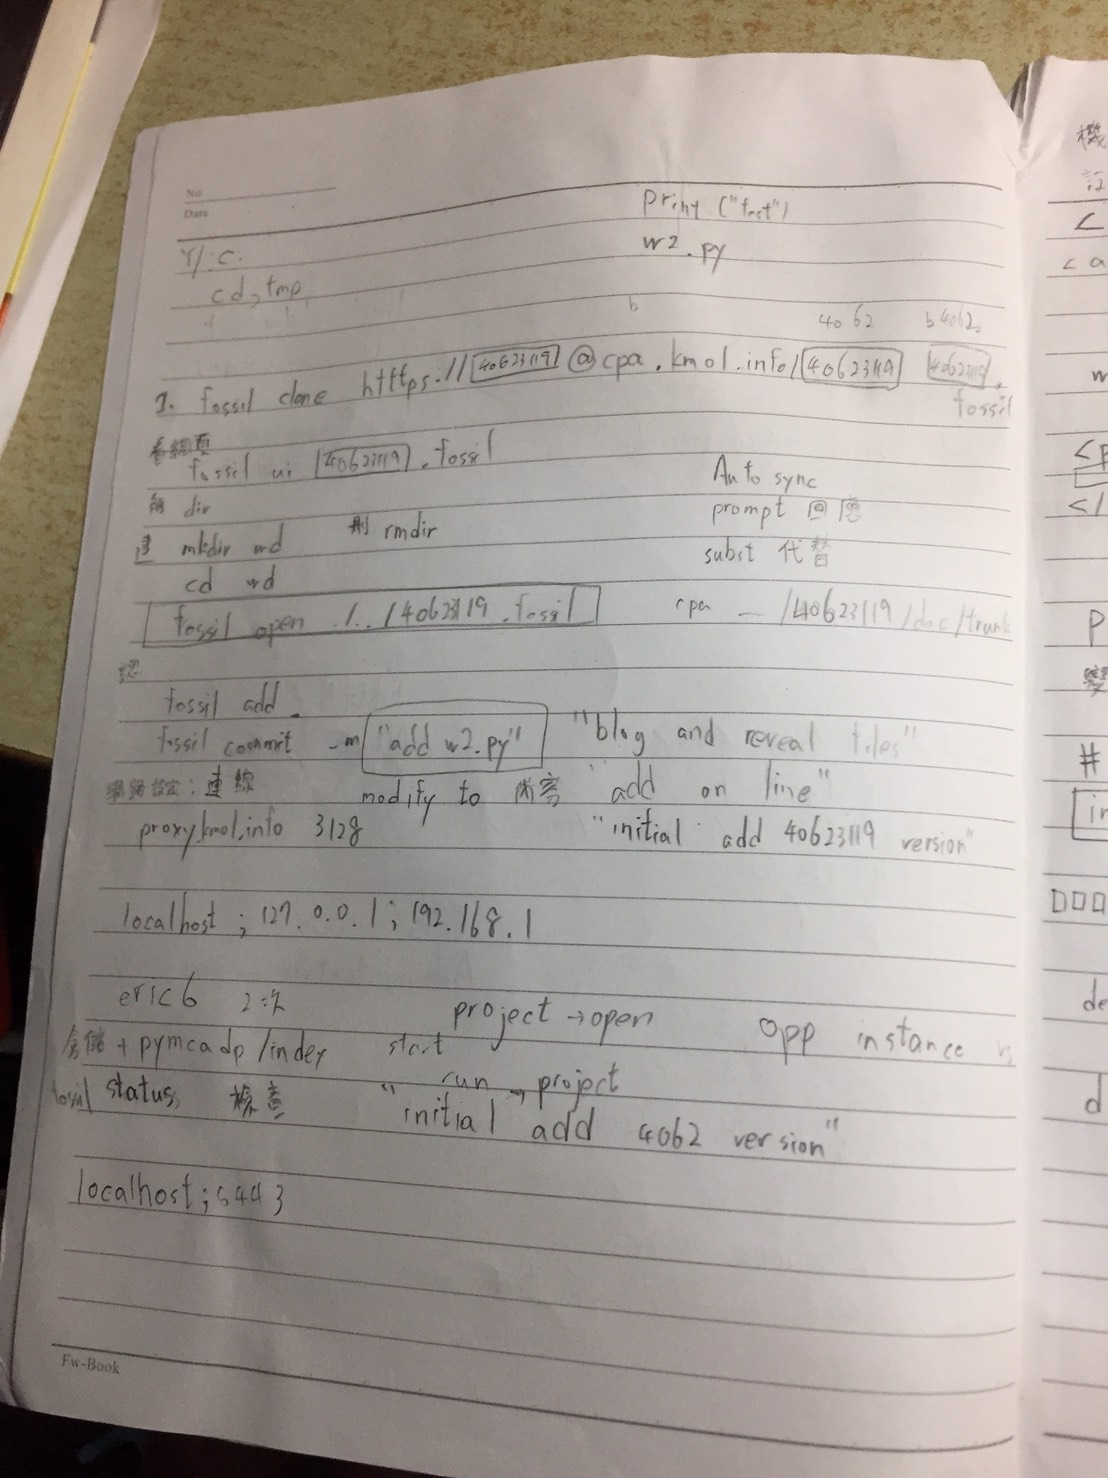 No.
Date
print ("test")
Y/.C.
w2.py
cd tmp
b
4062 b4062
1. fossil clone https://40623119@cpa.kmol.info/40623119 40623119.
fossil
看網頁
fossil ui 40623119.fossil
Auto sync
dir
prompt 回應
建 mkdir wd 刪 rmdir
subst 代替
cd wd
fossil open ./../40623119.fossil
cpa — /40623119/doc/trunk
fossil add .
fossil commit -m "add w2.py" "blog and reveal tiles"
網路設定：連線
modify to 內容 "add on line"
proxy.kmol.info 3128
"initial add 40623119 version"
localhost ; 127.0.0.1 ; 192.168.1
eric6 2次
project → open
opp instance
+ pymcadp/index start
run → project
fossil status
"initial add 4062 version"
localhost ; 8443
Fw-Book
機
訂
<
<a
w
<p
</
p
變
#
in
de
d